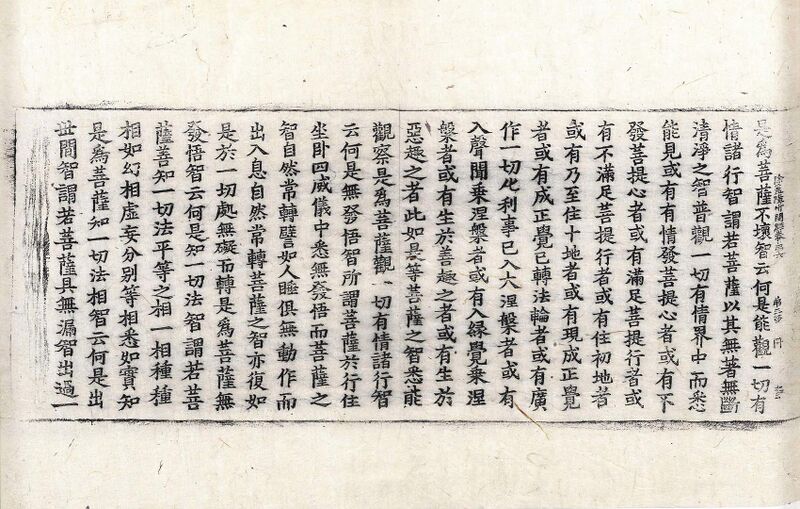 是為菩薩不壞智云何是能觀一切有
情諸行智謂若菩薩以其無著無斷
清淨之智普觀一切有情界中而悉
能見或有有情發菩提心者或有不
發菩提心者或有滿足菩提行者或
有不滿足菩提行者或有住初地者
或有乃至住十地者或有現成正覺
者或有成正覺已轉法輪者或有廣
作一切化利事已入大涅槃者或有
入聲聞乘涅槃者或有入緣覺乘涅
槃者或有生於善趣之者或有生於
惡趣之者此如是等菩薩之智悉能
觀察是為菩薩觀一切有情諸行智
云何是無發悟智所謂菩薩於行住
坐卧四威儀中悉無發悟而菩薩之
智自然常轉譬如人睡俱無動作而
出入息自然常轉菩薩之智亦復如
是於一切處無礙而轉是為菩薩無
發悟智云何是知一切法智謂若菩
薩善知一切法平等之相一相種種
相如幻相虛妄分別等相悉如實知
是為菩薩知一切法相智云何是出
世間智謂若菩薩具無漏智出過一